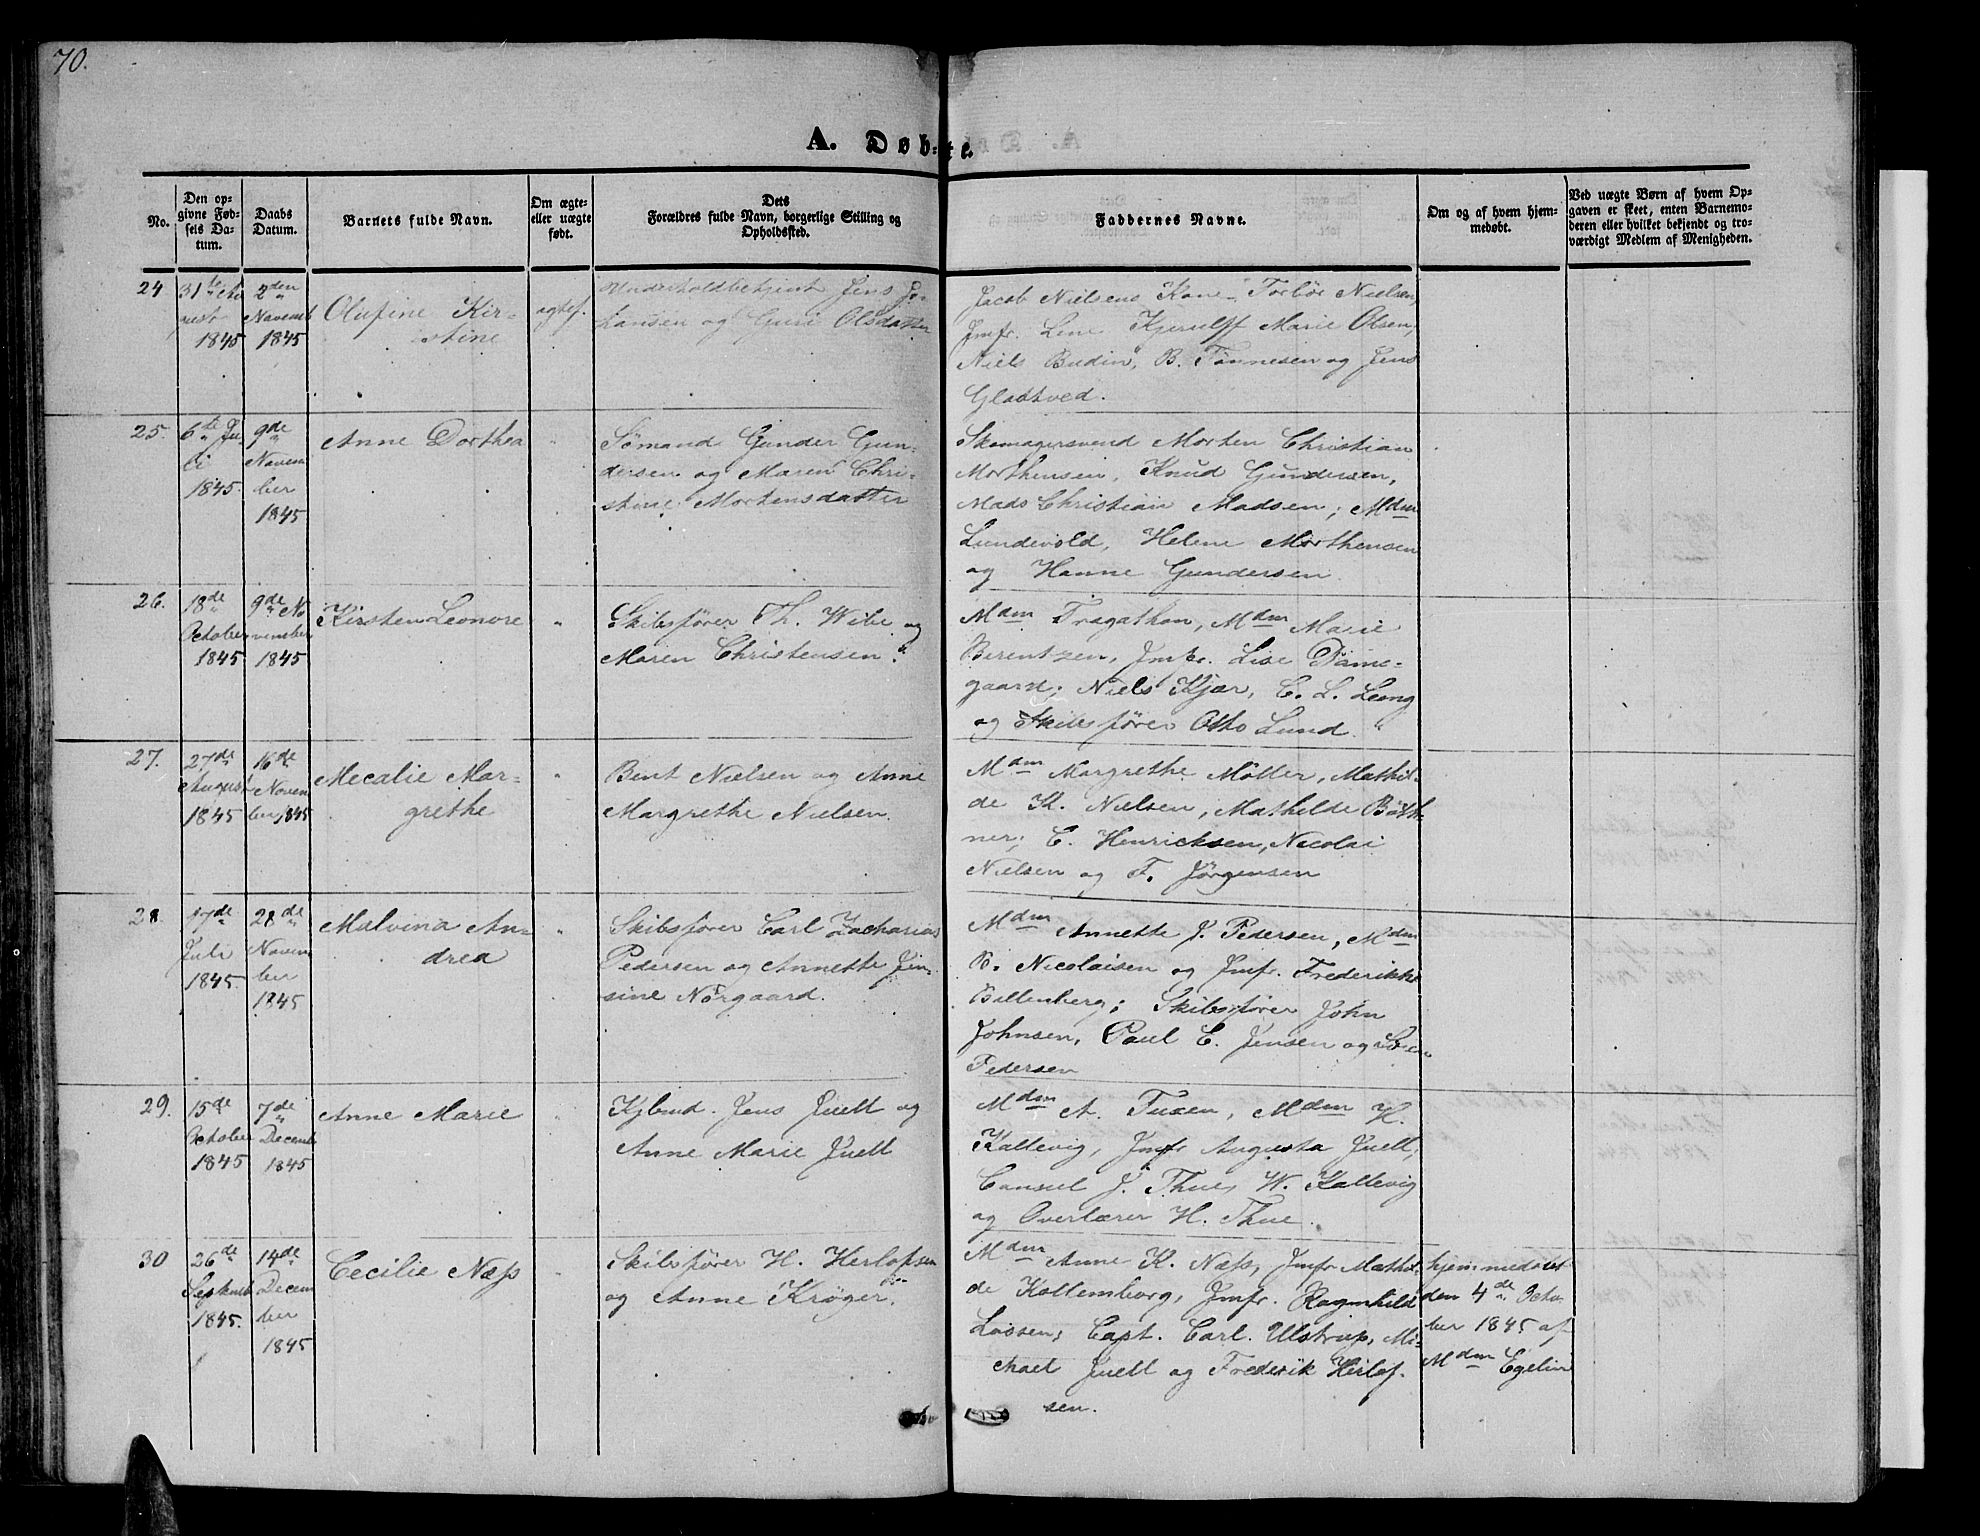 70.
A. Døbte.
No.
Den opgivne Fødsels Datum.
Daabs Datum.
Barnets fulde Navn.
Om ægte- eller uægte født.
Dets Forældres fulde Navn, borgerlige Stilling og Opholdssted.
Faddernes Navne.
Om og af hvem hjemmedøbt.
Ved uægte Børn af hvem Opgaven er skeet, enten Barnemoderen eller hvilket bekjendt og troværdigt Medlem af Menigheden.
24
31te Au
gust
1845
2den
Novemb
1845
Olufine Kir-
stine
ægtef.
Jens Jo-
hansen og Guri Olsdatter
Jacob Nielsens Kone, Torbør Nielsen,
Jmfr. Line Kjerulff Marie Olsen,
Niels Budin, B. Tønnesen og Jens
Glastved.
25.
6te Ju-
li
1845.
9de
Novem
ber
1845
Anne Dorthea
"
Sømand Gunder Gun-
dersen og Maren Chri-
stine Mortensdatter
Skomagersvend Morten Christian
Morthensen, Knud Gundersen,
Mads Christian Madsen; Mdm
Lundevold, Helene Morthensen
og Hanne Gundersen
26.
18de
October
1845
9de No
vember
1845
Kirsten Leonore
"
Skibsfører Th. Wibe og
Maren Christensen.
Mdm Fragathon, Mdm Marie
Berentzen, Jmfr. Lise Dame-
gaard; Niels Kjær, C. L. Leong
og Skibsfører Otto Lund.
27.
27de
August
1845
16de
Novem
ber 1845
Mecalie Mar-
grethe
"
Bent Nielsen og Anne
Margrethe Nielsen.
Mdm Margrethe Möller, Mathil-
de K. Nielsen, Mathilde Böth-
ner; C. Henricksen, Nicolai
Nielsen og F. Jörgensen
28.
17de
Juli
1845.
28de
Novem
ber
1845
Malvina An-
drea
"
Skibsfører Carl Zacharias
Pedersen og Annette Jen-
sine Nörgaard.
Mdm Annette J. Pedersen, Mdm
B. Nicolaisen og Jmfr. Frederikke
Bellenberg; Skibsfører John
Johnsen, Paul C. Jensen og Sören
Pedersen
29.
15de
October
1845
7de
Decemb
1845
Anne Marie
"
Kjbmd. Jens Juell og
Anne Marie Juell
Mdm A. Tuxen, Mdm K.
Kallevig, Jmfr Augusta Juell,
Consul J. Thue, W. Kallevig
og Overlærer H. Thue.
30
26de
Septemb
1845.
14de
Decem
ber
1845
Cecilie Næss
"
Skibsfører H. Herlofsen
og Anne Krøger.
Mdm Anne K. Næss, Jmfr Mathil-
de Kallemborg, Jmfr. Ragnhild
Lassen; Capt. Carl. Ulstrup, Mi-
chael Juell og Frederik Herlof-
sen.
hjemmedøbt
den 4de Octo-
ber 1845 af
Mdm Egelin